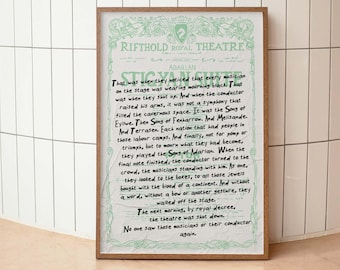 RIFTHOLD ROYAL THEATRE
ADARLAN
STYGIAN
That was when they noticed that every musician
on the stage was wearing mourning black. That
was when they shut up. And when the conductor
raised his arms, it was not a symphony that
filled the cavernous space. It was the Song of
Eyllwe. Then Song of Fenharrow. And Melisande.
And Terrasen. Each nation that had people in
those labour camps. And finally, not for pomp or
triumph, but to mourn what they had become,
they played the Song of Adarlan. When the
final note finished, the conductor turned to the
crowd, the musicians standing with him. As one,
they looked to the boxes, to all those jewels
bought with the blood of a continent. And without
a word, without a bow or another gesture, they
walked off the stage.
The next morning, by royal decree,
the theatre was shut down.
No one saw those musicians or their conductor
again.